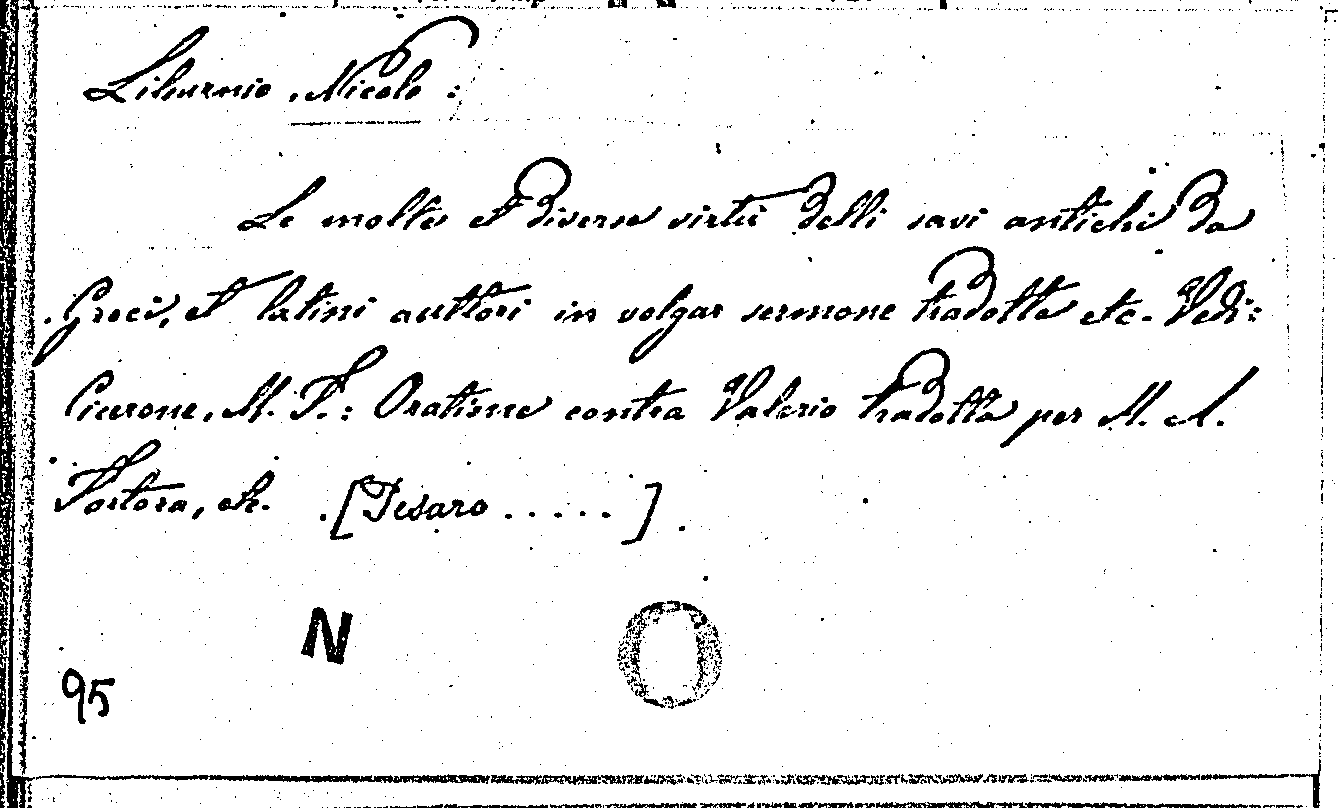 Liburnio, Nicolo :
Le molte et diverse virtù delli savi antichi da
Greci, et latini auttori in volgar sermone tradotte etc. Vedi:
Cicerone, M. T.: Oratione contra Valerio tradotta per M. A.
Tortora, etc. [Pesaro . . . . . ] .
N O
95